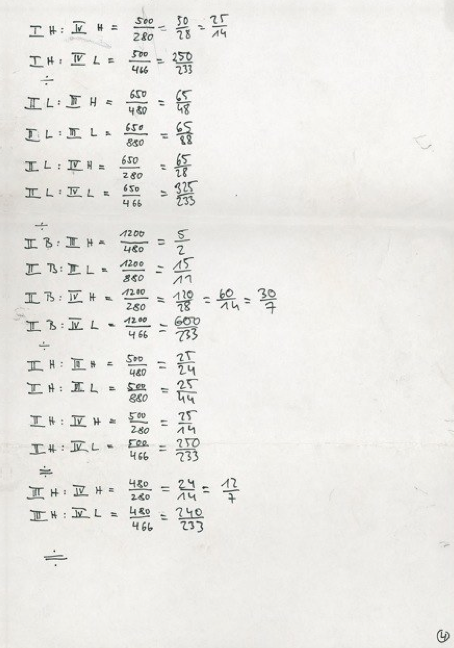 I H : IV H = 500/280 = 50/28 = 25/14
I H : IV L = 500/466 = 250/233
÷
II L : III H = 650/480 = 65/48
II L : III L = 650/880 = 65/88
II L : IV H = 650/280 = 65/28
II L : IV L = 650/466 = 325/233
÷
II B : III H = 1200/480 = 5/2
II B : III L = 1200/880 = 15/11
II B : IV H = 1200/280 = 120/28 = 60/14 = 30/7
II B : IV L = 1200/466 = 600/233
÷
II H : III H = 500/480 = 25/24
II H : III L = 500/880 = 25/44
II H : IV H = 500/280 = 25/14
II H : IV L = 500/466 = 250/233
÷
III H : IV H = 480/280 = 24/14 = 12/7
III H : IV L = 480/466 = 240/233
÷
④